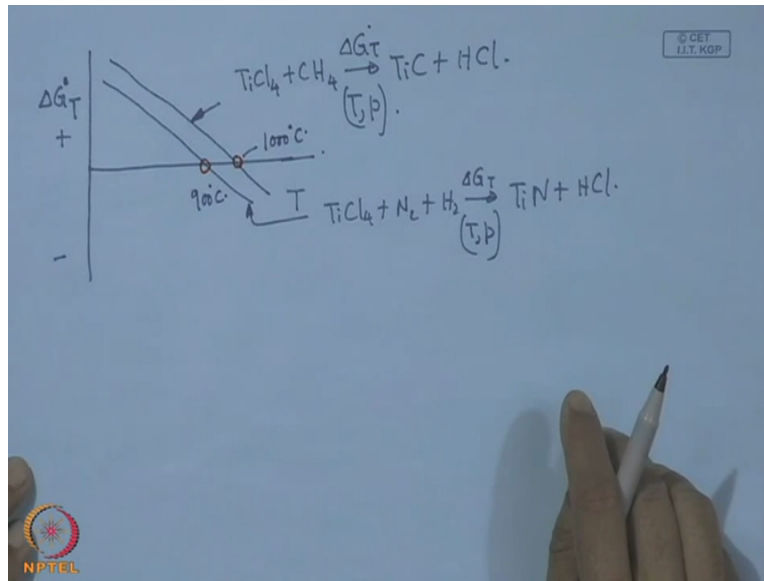 © CET
I.I.T. KGP
ΔG°T
+
−
TiCl4 + CH4 ΔG°T → TiC + HCl.
(T, p).
1000°C.
900°C.
T
TiCl4 + N2 + H2 ΔGT → TiN + HCl.
(T, p)
NPTEL